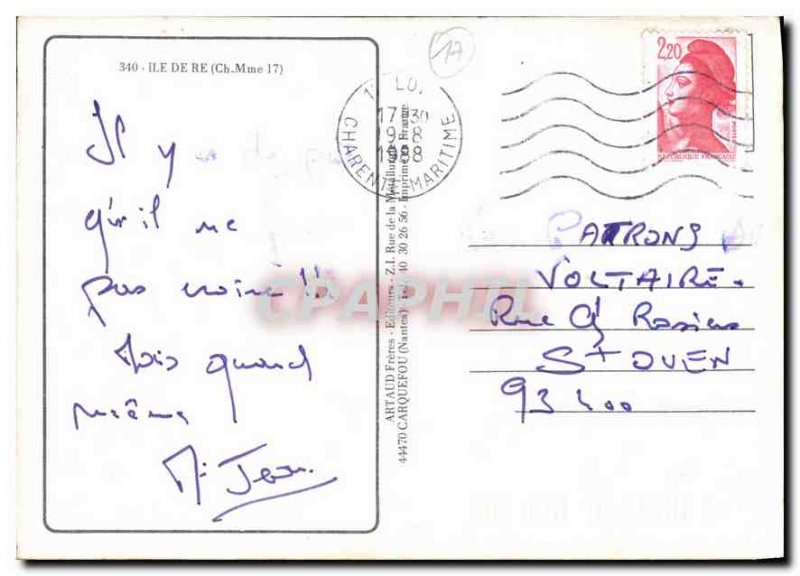 340 - ILE DE RE (Ch.Mme 17)
Il y a
qu'il ne
pas croire !!
Mais quand
même
M. Jean.
17
17-30
19-8
1988
CHARENTE-MARITIME
2,20
REPUBLIQUE FRANÇAISE
ARTAUD Frères - Editeurs - Z.I. Rue de la Métallurgie
44470 CARQUEFOU (Nantes) Tél. 40 30 26 56 - Imprimé en France
CPAPHIL
PATRONS
VOLTAIRE.
Rue des Rosiers
ST OUEN
93400